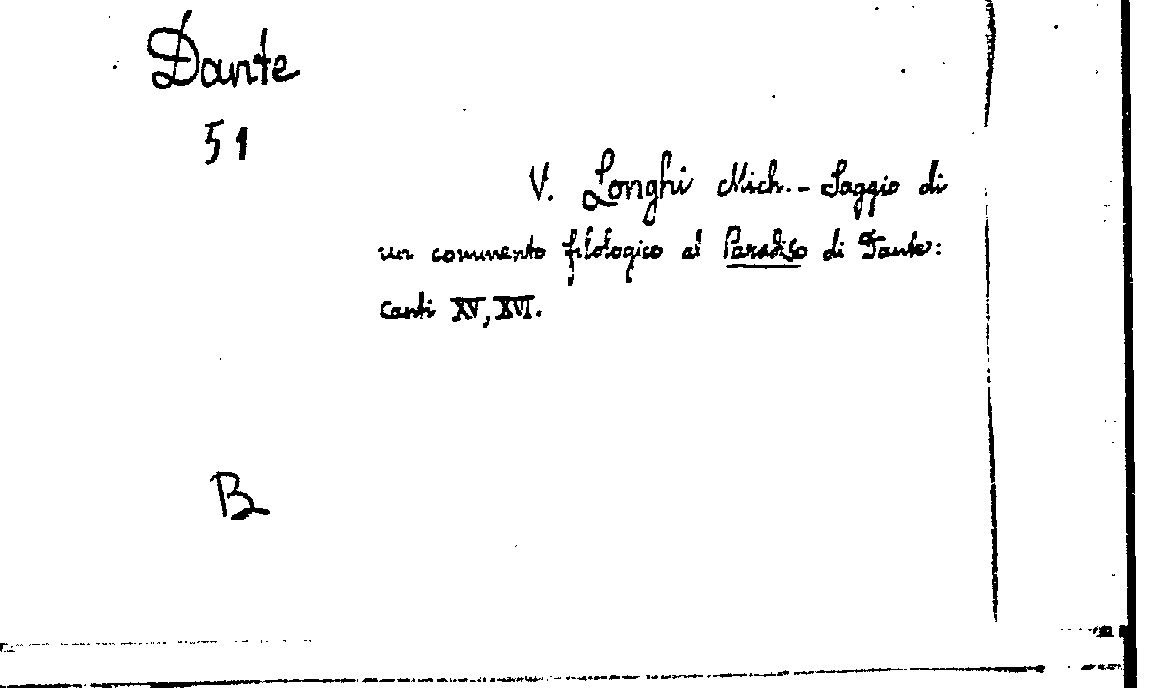 Dante
51
V. Longhi Mich. - Saggio di
un commento filologico al Paradiso di Dante:
canti XV, XVI.
B